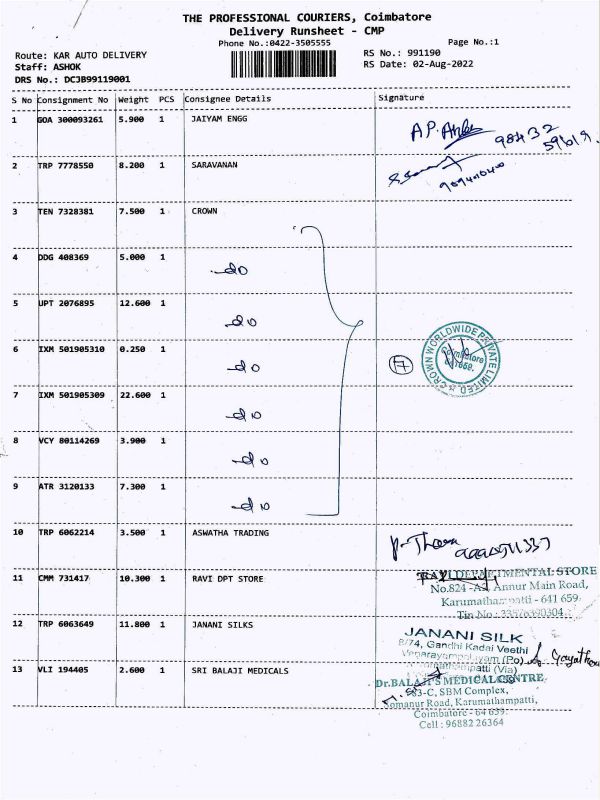 THE PROFESSIONAL COURIERS, Coimbatore
Delivery Runsheet - CMP
Phone No.:0422-3505555 Page No.:1
Route: KAR AUTO DELIVERY RS No.: 991190
Staff: ASHOK RS Date: 02-Aug-2022
DRS No.: DCJB99119001
S No Consignment No Weight PCS Consignee Details Signature
1 GOA 300093261 5.900 1 JAIYAM ENGG
2 TRP 7778550 8.200 1 SARAVANAN
3 TEN 7328381 7.500 1 CROWN
4 DDG 408369 5.000 1 do
5 UPT 2076895 12.600 1 do
6 IXM 501905310 0.250 1 do
CROWN WORLDWIDE PRIVATE LIMITED
Coimbatore
7
7 IXM 501905309 22.600 1 do
8 VCY 80114269 3.900 1 do
9 ATR 3120133 7.300 1 do
10 TRP 6062214 3.500 1 ASWATHA TRADING
11 CMM 731417 10.300 1 RAVI DPT STORE
STORE
Annur Main Road,
Karumathampatti - 641 659
12 TRP 6063649 11.800 1 JANANI SILKS
JANANI SILK
8/74, Gandhi Kadai Veethi
(Po)
(Via)
13 VLI 194405 2.600 1 SRI BALAJI MEDICALS
Dr.BALAJI'S MEDICAL CENTRE
SBM Complex,
Road, Karumathampatti,
Coimbatore - 
Cell : 96882 26364